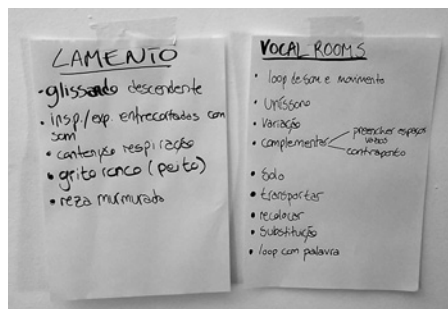 LAMENTO
• glissando descendente
• insp./exp. entrecortadas com
som
• contenção respiração
• grito ronco (peito)
• reza murmurada
VOCAL ROOMS
• loop de som e movimento
• Uníssono
• Variação
• complementar
preencher espaços
vazios
contraponto
• Solo
• transportar
• recolocar
• Substituição
• loop com palavra